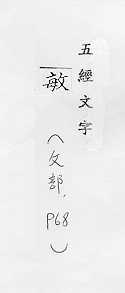 五經文字
(攵部, P68)